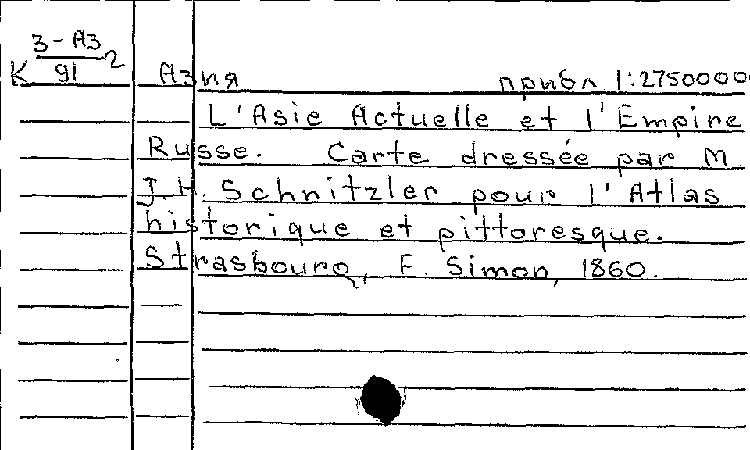 К 3-Аз/91 2
Азия прибл 1:27500000
L'Asie Actuelle et l'Empire
Russe. Carte dressée par M.
J.H. Schnitzler pour l'Atlas
historique et pittoresque.
Strasbourg, E. Simon, 1860.